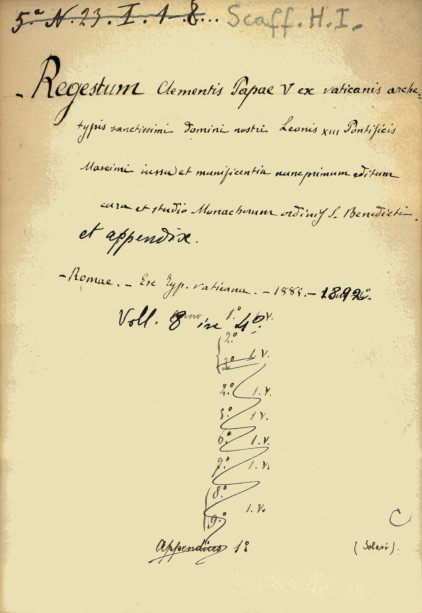 5ª N. 23. I. 1-8... Scaff. H. I.
- Regestum Clementis Papae V ex vaticanis arche=
typis sanctissimi domini nostri Leonis XIII Pontificis
Maximi iussu et munificentia nunc primum editum
cura et studio Monachorum ordinis S. Benedicti
et appendix.
- Romae. - Ex Typ. vaticana. - 1885. - 1892.
Voll. 8 in 4º.
1.º 1. V.
2.º
3.º 1. V.
1. V.
1 V.
6.º 1. V.
1. V.
8.º
9.º 1. V.
Appendices 1º
C